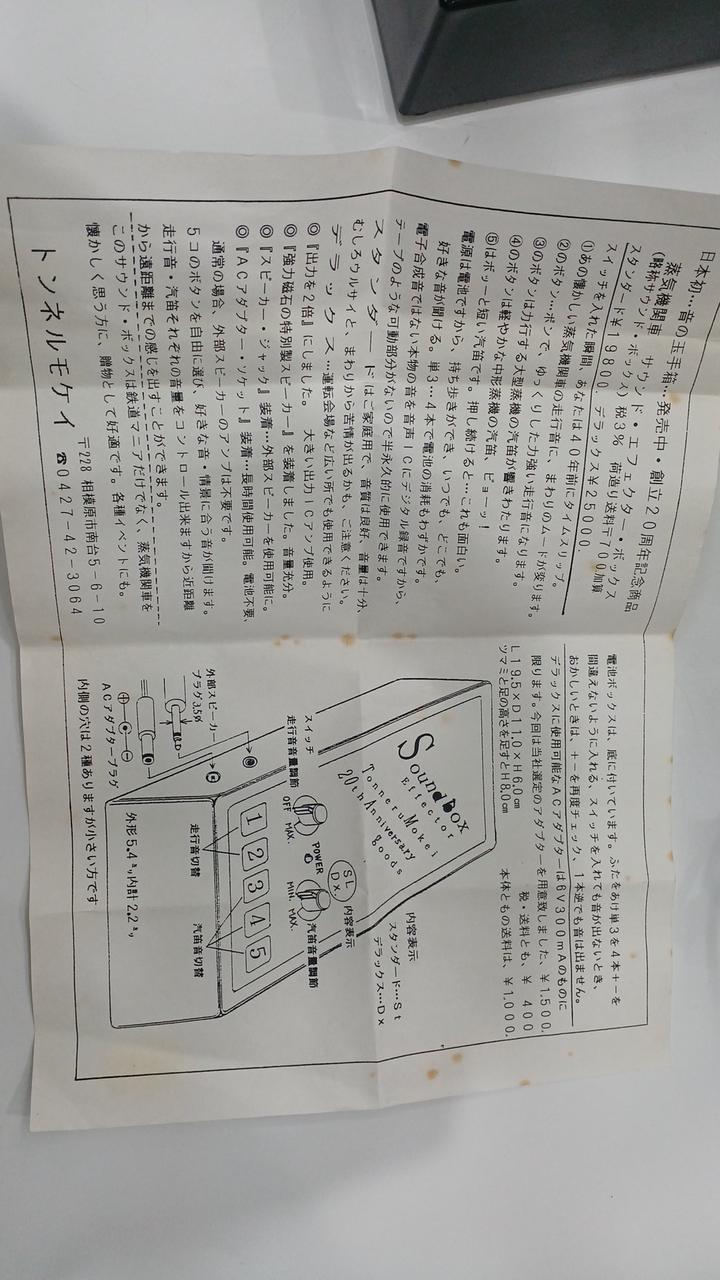 日本初…音の玉手箱…発売中・創立20周年記念商品
蒸気機関車　サウンド・エフェクター・ボックス
(略称サウンド・ボックス) 税3%　荷造り送料〒700加算
スタンダード¥19,800　デラックス¥25,000.
スイッチを入れた瞬間、あなたは40年前にタイムスリップ。
①あの懐かしい蒸気機関車の走行音に、まわりのムードが変ります。
②のボタン…ボンで、ゆっくりした力強い走行音になります。
③のボタンは力行する大型蒸機の汽笛が響きわたります。
④のボタンは軽やかな中形蒸機の汽笛、ピョーッ！
⑤はボッーと短い汽笛です。押し続けると…これも面白い。
電源は電池ですから、持ち歩きができ、いつでも、どこでも、
好きな音が聞ける。単3…4本で電池の消耗もわずかです。
電子合成音ではない本物の音を音声ICにデジタル録音ですから、
テープのような可動部分がないので半永久的に使用できます。
スタンダードはご家庭用で、音質は良好、音量は十分、
むしろウルサイと、まわりから苦情が出るかも、ご注意ください。
デラックス…運転会場など広い所でも使用できるように
◎『出力を2倍』にしました。　大きい出力ICアンプ使用。
◎『強力磁石の特別製スピーカー』を装着しました。音量充分。
◎『スピーカー・ジャック』装着…外部スピーカーを使用可能に。
◎『ACアダプター・ソケット』装着…長時間使用可能。電池不要、
通常の場合、外部スピーカーのアンプは不要です。
5コのボタンを自由に選び、好きな音・情景に合う音が聞けます。
走行音・汽笛それぞれの音量をコントロール出来ますから近距離
から遠距離までの感じを出すことができます。
このサウンド・ボックスは鉄道マニアだけでなく、蒸気機関車を
懐かしく思う方に、贈物として好適です。各種イベントにも。
トンネルモケイ　〒228 相模原市南台5-6-10
☎0427-42-3064
電池ボックスは、底に付いています。ふたをあけ単3を4本+−を
間違えないように入れる、スイッチを入れても音が出ないとき、
おかしいときは、+−を再度チェック、1本逆でも音は出ません。
デラックスに使用可能なACアダプターは6V300mAのものに
限ります。今回は当社選定のアダプターを用意致しました、¥1,500.
税・送料とも、¥ 400
L19.5×D11.0×H6.0cm　本体ともの送料は、¥1,000.
ツマミと足の高さを足すとH8.0cm
内容表示
スタンダード…St
デラックス…Dx
Soundbox
Effector
Tonneru Mokei
20th Anniversary
goods
SL
Dx
内容表示
スイッチ
走行音音量調節
OFF MAX.
POWER
MIN. MAX.
汽笛音量調節
1 2 3 4 5
走行音切替
汽笛音切替
外部スピーカー
プラグ3.5φ
ACアダプタープラグ
外形5.4ミリ内計2.2ミリ
内側の穴は2種ありますが小さい方です